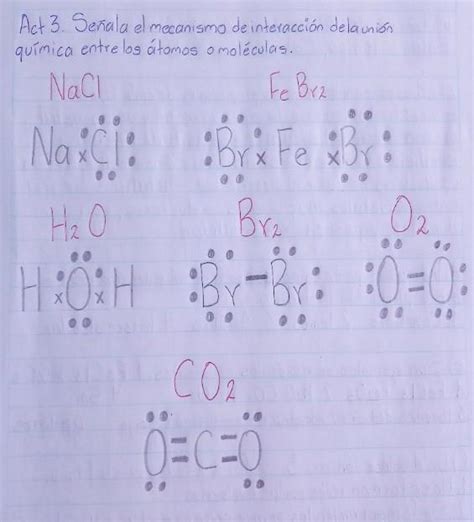 Act 3. Señala el mecanismo de interacción de la unión
química entre los átomos o moléculas.
NaCl FeBr2
Na x Cl Br x Fe x Br
H2O Br2 O2
H x O x H Br - Br O = O
CO2
O = C = O